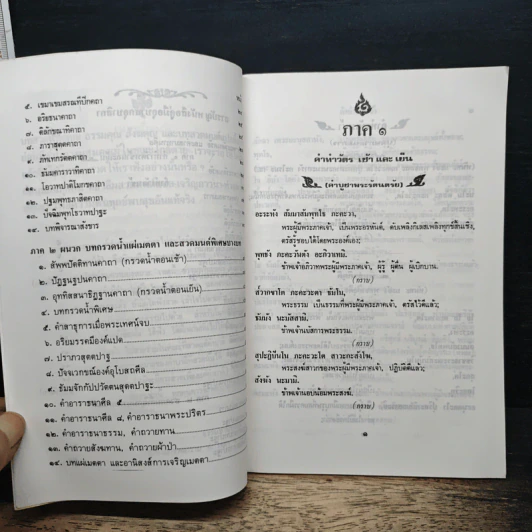 ๕. เขมาเขมสรณทีปิกคาถา
๖. อริยธนคาถา
๗. ติลักขณาทิคาถา
๘. ภารสุตตคาถา
๙. ภัทเทกรัตตคาถา
๑๐. ธัมมคารวาทิคาถา
๑๑. โอวาทปาติโมกขคาถา
๑๒. ปฐมพุทธภาสิตคาถา
๑๓. ปัจฉิมพุทโธวาทปาฐะ
๑๔. บทพิจารณาสังขาร
ภาค ๒ ผนวก บทกรวดน้ำแผ่เมตตา และสวดมนต์พิเศษบางบท
๑. สัพพปัตติทานคาถา (กรวดน้ำตอนเช้า)
๒. ปัฏฐนฐปนคาถา
๓. อุททิสสนาธิฏฐานคาถา (กรวดน้ำตอนเย็น)
๔. บทกรวดน้ำพิเศษ
๕. คำสาธุการเมื่อพระเทศน์จบ
๖. อริยมรรคมีองค์แปด
๗. ปราภวสุตตปาฐ
๘. ปัจฉเวกขณ์องค์อุโบสถศีล
๙. ธัมมจักกัปปวัตตนสุตตปาฐะ
๑๐. คำอาราธนาศีล ๕
๑๑. คำอาราธนาศีล ๘, คำอาราธนาพระปริตร
๑๒. คำอาราธนาธรรม, คำถวายทาน
๑๓. คำถวายสังฆทาน, คำถวายผ้าป่า
๑๔. บทแผ่เมตตา และอานิสงส์การเจริญเมตตา
ภาค ๑
คำทำวัตร เช้า และ เย็น
(คำบูชาพระรัตนตรัย)
อะระหัง สัมมาสัมพุทโธ ภะคะวา,
พระผู้มีพระภาคเจ้า, เป็นพระอรหันต์, ดับเพลิงกิเลสเพลิงทุกข์สิ้นเชิง,
ตรัสรู้ชอบได้โดยพระองค์เอง;
พุทธัง ภะคะวันตัง อะภิวาเทมิ.
ข้าพเจ้าอภิวาทพระผู้มีพระภาคเจ้า, ผู้รู้ ผู้ตื่น ผู้เบิกบาน.
(กราบ)
สวากขาโต ภะคะวะตา ธัมโม,
พระธรรม เป็นธรรมที่พระผู้มีพระภาคเจ้า, ตรัสไว้ดีแล้ว;
ธัมมัง นะมัสสามิ.
ข้าพเจ้านมัสการพระธรรม.
(กราบ)
สุปะฏิปันโน ภะคะวะโต สาวะกะสังโฆ,
พระสงฆ์สาวกของพระผู้มีพระภาคเจ้า, ปฏิบัติดีแล้ว;
สังฆัง นะมามิ.
ข้าพเจ้านอบน้อมพระสงฆ์.
(กราบ)
๑